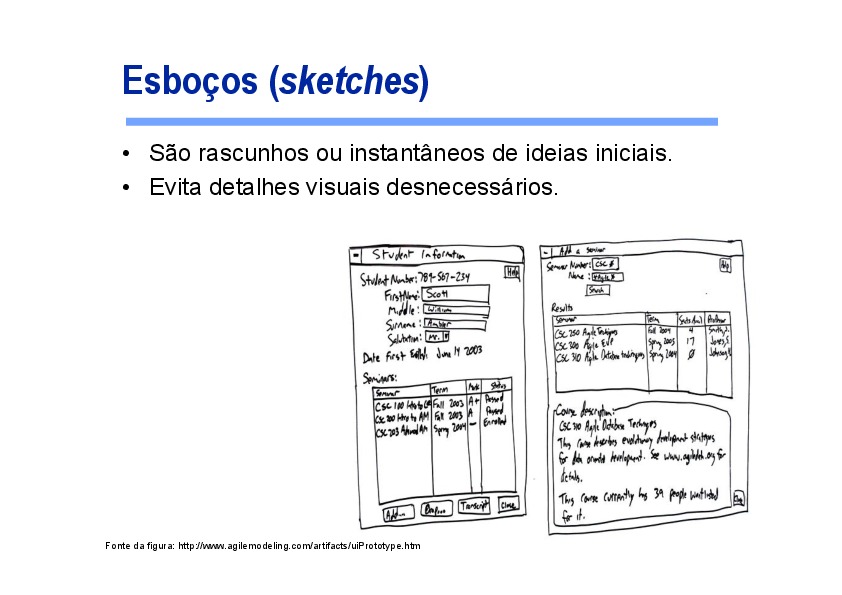 Esboços (sketches)
• São rascunhos ou instantâneos de ideias iniciais.
• Evita detalhes visuais desnecessários.
Student Information
Help
Student Number: 789-567-234
First Name: Scott
Middle: William
Surname: Ambler
Salutation: Mr.
Date First June 14 2003
Seminars:
Seminar Term Mark Status
CSC 100 Intro to Fall 2003 A+ Passed
CSC 200 Intro to AM Fall 2003 A Passed
CSC 203 Advanced AM Spring 2004 — Enrolled
Add... Drop... Transcript Close
Add a seminar
Seminar Number: CSC * Help
Name: *Agile*
Search
Results
Seminar Term Professor
CSC 250 Agile Techniques Fall 2004 4 Smith, J.
CSC 300 Agile EUP Spring 2005 17 Jones, S.
CSC 310 Agile Database techniques Spring 2004 Ø Johnson,
Course description:
CSC 310 Agile Database Techniques
This course describes evolutionary development strategies
for data oriented development. See www.agiledata.org for
details.
This course currently has 39 people waitlisted
for it.
Fonte da figura: http://www.agilemodeling.com/artifacts/uiPrototype.htm